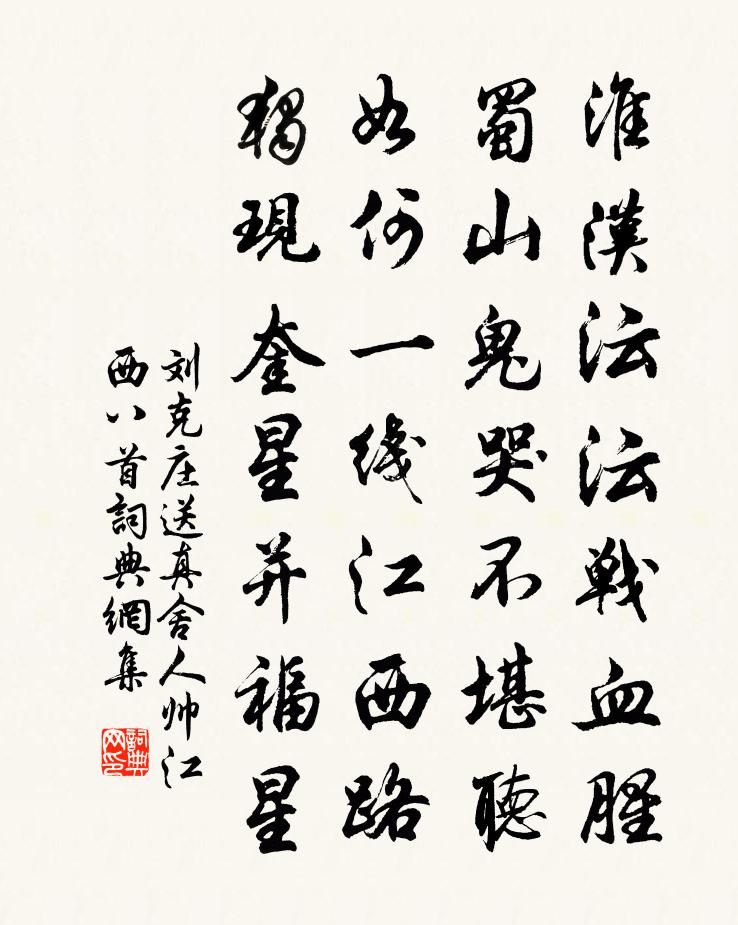 淮漢沄沄戦血腥
蜀山鬼哭不堪聽
如何一线江西路
獨現奎星并福星
刘克庄送真舍人帅江
西八首詞典網集
詞典网印